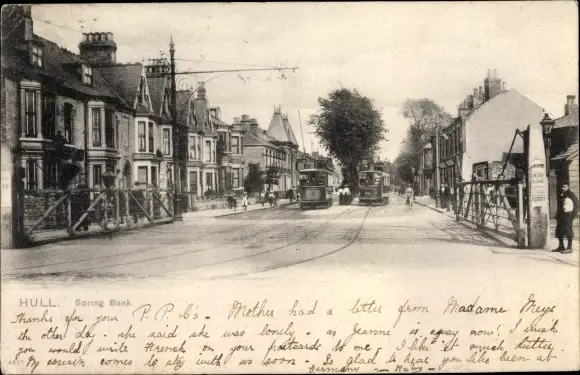 HULL. Spring Bank
Thanks for your P.P.C's. Mother had a letter from Madame Meys
the other day - she said she was lonely - as Jeanne is away now! I wish
you would write French on your postcards to me. I like it much better.
My cousin comes to stay with us soon. So glad to hear you like been at
Germany - Ruby -